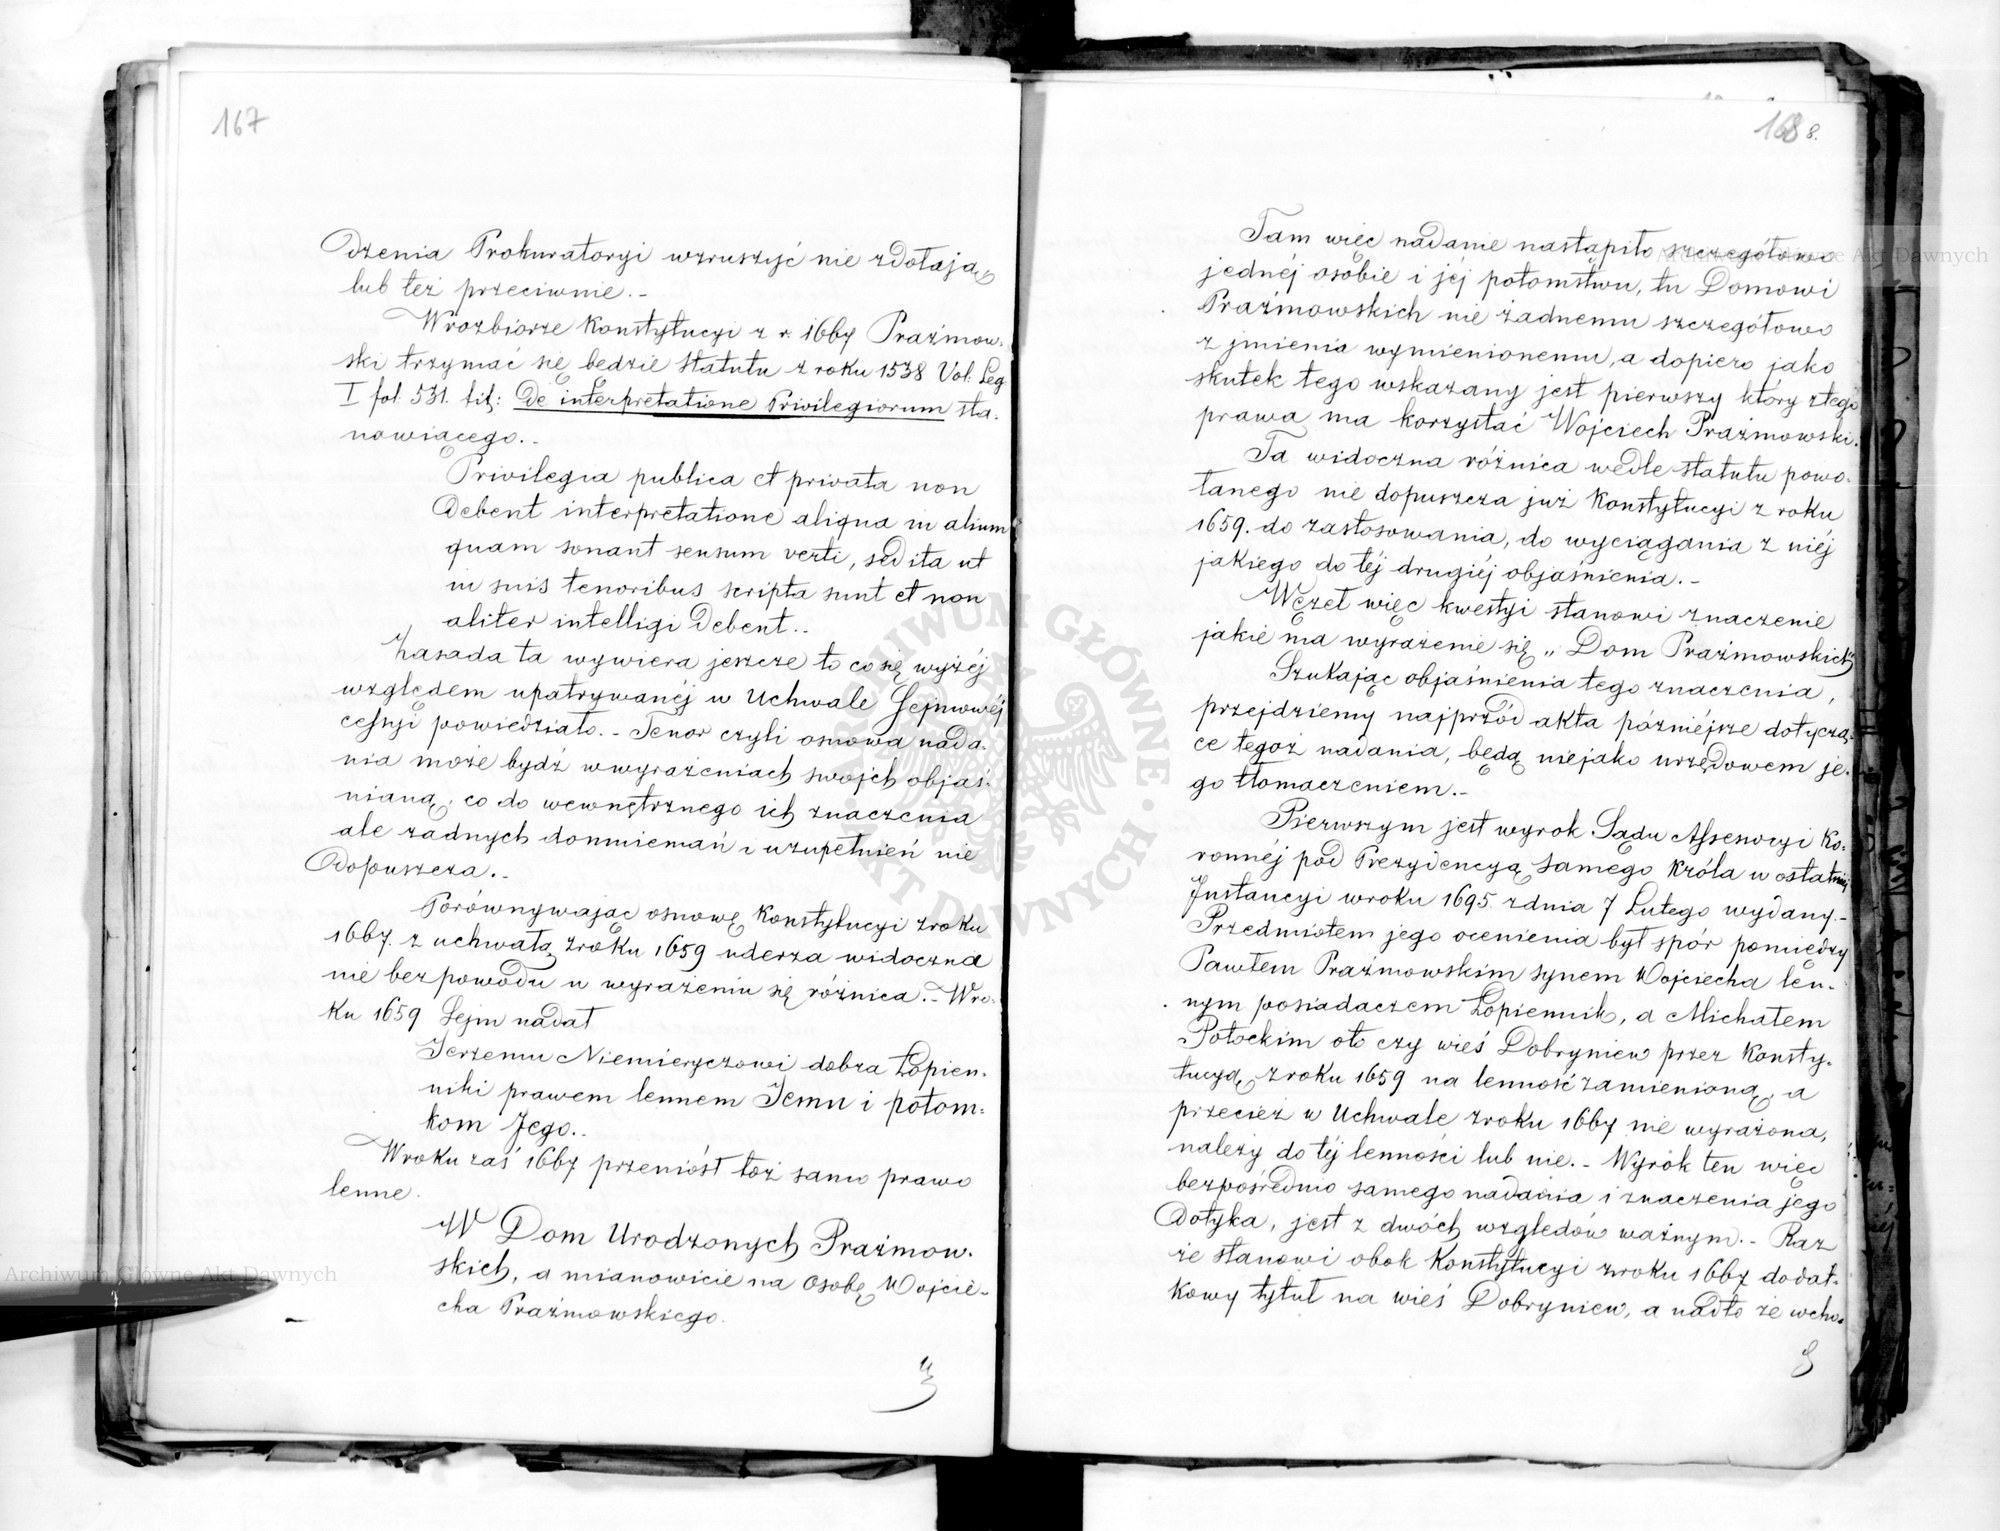 167
Dzenia Prokuratoryi wzruszyć nie zdołają
lub też przeciwnie.-
W rozbiorze Konstytucyi z r. 1667 Prażmow-
ski trzymać się będzie statutu z roku 1538 Vol: Leg
I fol. 531. tit: De interpretatione Privilegiorum sta-
nowiącego.-
Privilegia publica et privata non
debent interpretatione aliqua in alium
quam sonant sensum verti, sed ita ut
in suis tenoribus scripta sunt et non
aliter intelligi debent.-
Zasada ta wywiera jeszcze to co się wyżéj
względem upatrywanéj w Uchwale Sejmowéj
cessyi powiedziało.- Tenor czyli osnowa nada-
nia może bydź w wyrażeniach swojch objaś-
nianą, co do wewnętrznego ich znaczenia
ale żadnych domniemań i uzupełnień nie
dopuszcza.-
Porównywając osnowę Konstytucyi z roku
1667. z uchwałą z roku 1659 uderza widoczna
nie bez powodu w wyrażeniu się różnica.- W ro-
ku 1659 Sejm nadał
Jerzemu Niemieryczowi dobra Łopien-
niki prawem lennem Jemu i potom-
kom Jego.-
W roku zaś 1667 przeniósł toż samo prawo
lenne.
W Dom Urodzonych Prażmow-
skich, a mianowicie na Osobę Wojcie-
cha Prażmowskiego.
168 8.
Tam więc nadanie nastąpiło szczegółowo
jednéj osobie i jéj potomstwu, tu Domowi
Prażmowskich nie żadnemu szczegółowo
z jmienia wymienionemu, a dopiero jako
skutek tego wskazany jest pierwszy który z tego
prawa ma korzystać Wojciech Prażmowski.
Ta widoczna różnica wedle statutu powo-
łanego nie dopuszcza już Konstytucyi z roku
1659. do zastosowania, do wyciągania z niéj
jakiego do téj drugiéj objaśnienia.-
Węzeł więc kwestyi stanowi znaczenie
jakie ma wyrażenie się „Dom Prażmowskich"
Szukając objaśnienia tego znaczenia,
przejdziemy najprzód akta późniejsze dotyczą-
ce tegoż nadania, będą niejako urzędowem je-
go tłomaczeniem.-
Pierwszym jest wyrok Sądu Assesoryi Ko-
ronnéj pod Prezydencyą samego Króla w ostatniéj
Instancyi w roku 1695 z dnia 7 Lutego wydany.-
Przedmiotem jego ocenienia był spór pomiędzy
Pawłem Prażmowskim synem Wojciecha len-
nym posiadaczem Łopiennik, a Michałem
Potockim o to czy wieś Dobryniew przez Konsty-
tucyą z roku 1659 na lenność zamienioną, a
przecież w Uchwale z roku 1667 nie wyrażona,
należy do téj lenności lub nie.- Wyrok ten więc
bezpośrednio samego nadania i znaczenia jego
dotyka, jest z dwóch względów ważnym.- Raz
że stanowi obok Konstytucyi z roku 1667 dodat-
kowy tytuł na wieś Dobryniew, a nadto że wcho-
Archiwum Główne Akt Dawnych
Archiwum Główne Akt Dawnych
ARCHIWUM GŁÓWNE · AKT DAWNYCH ·